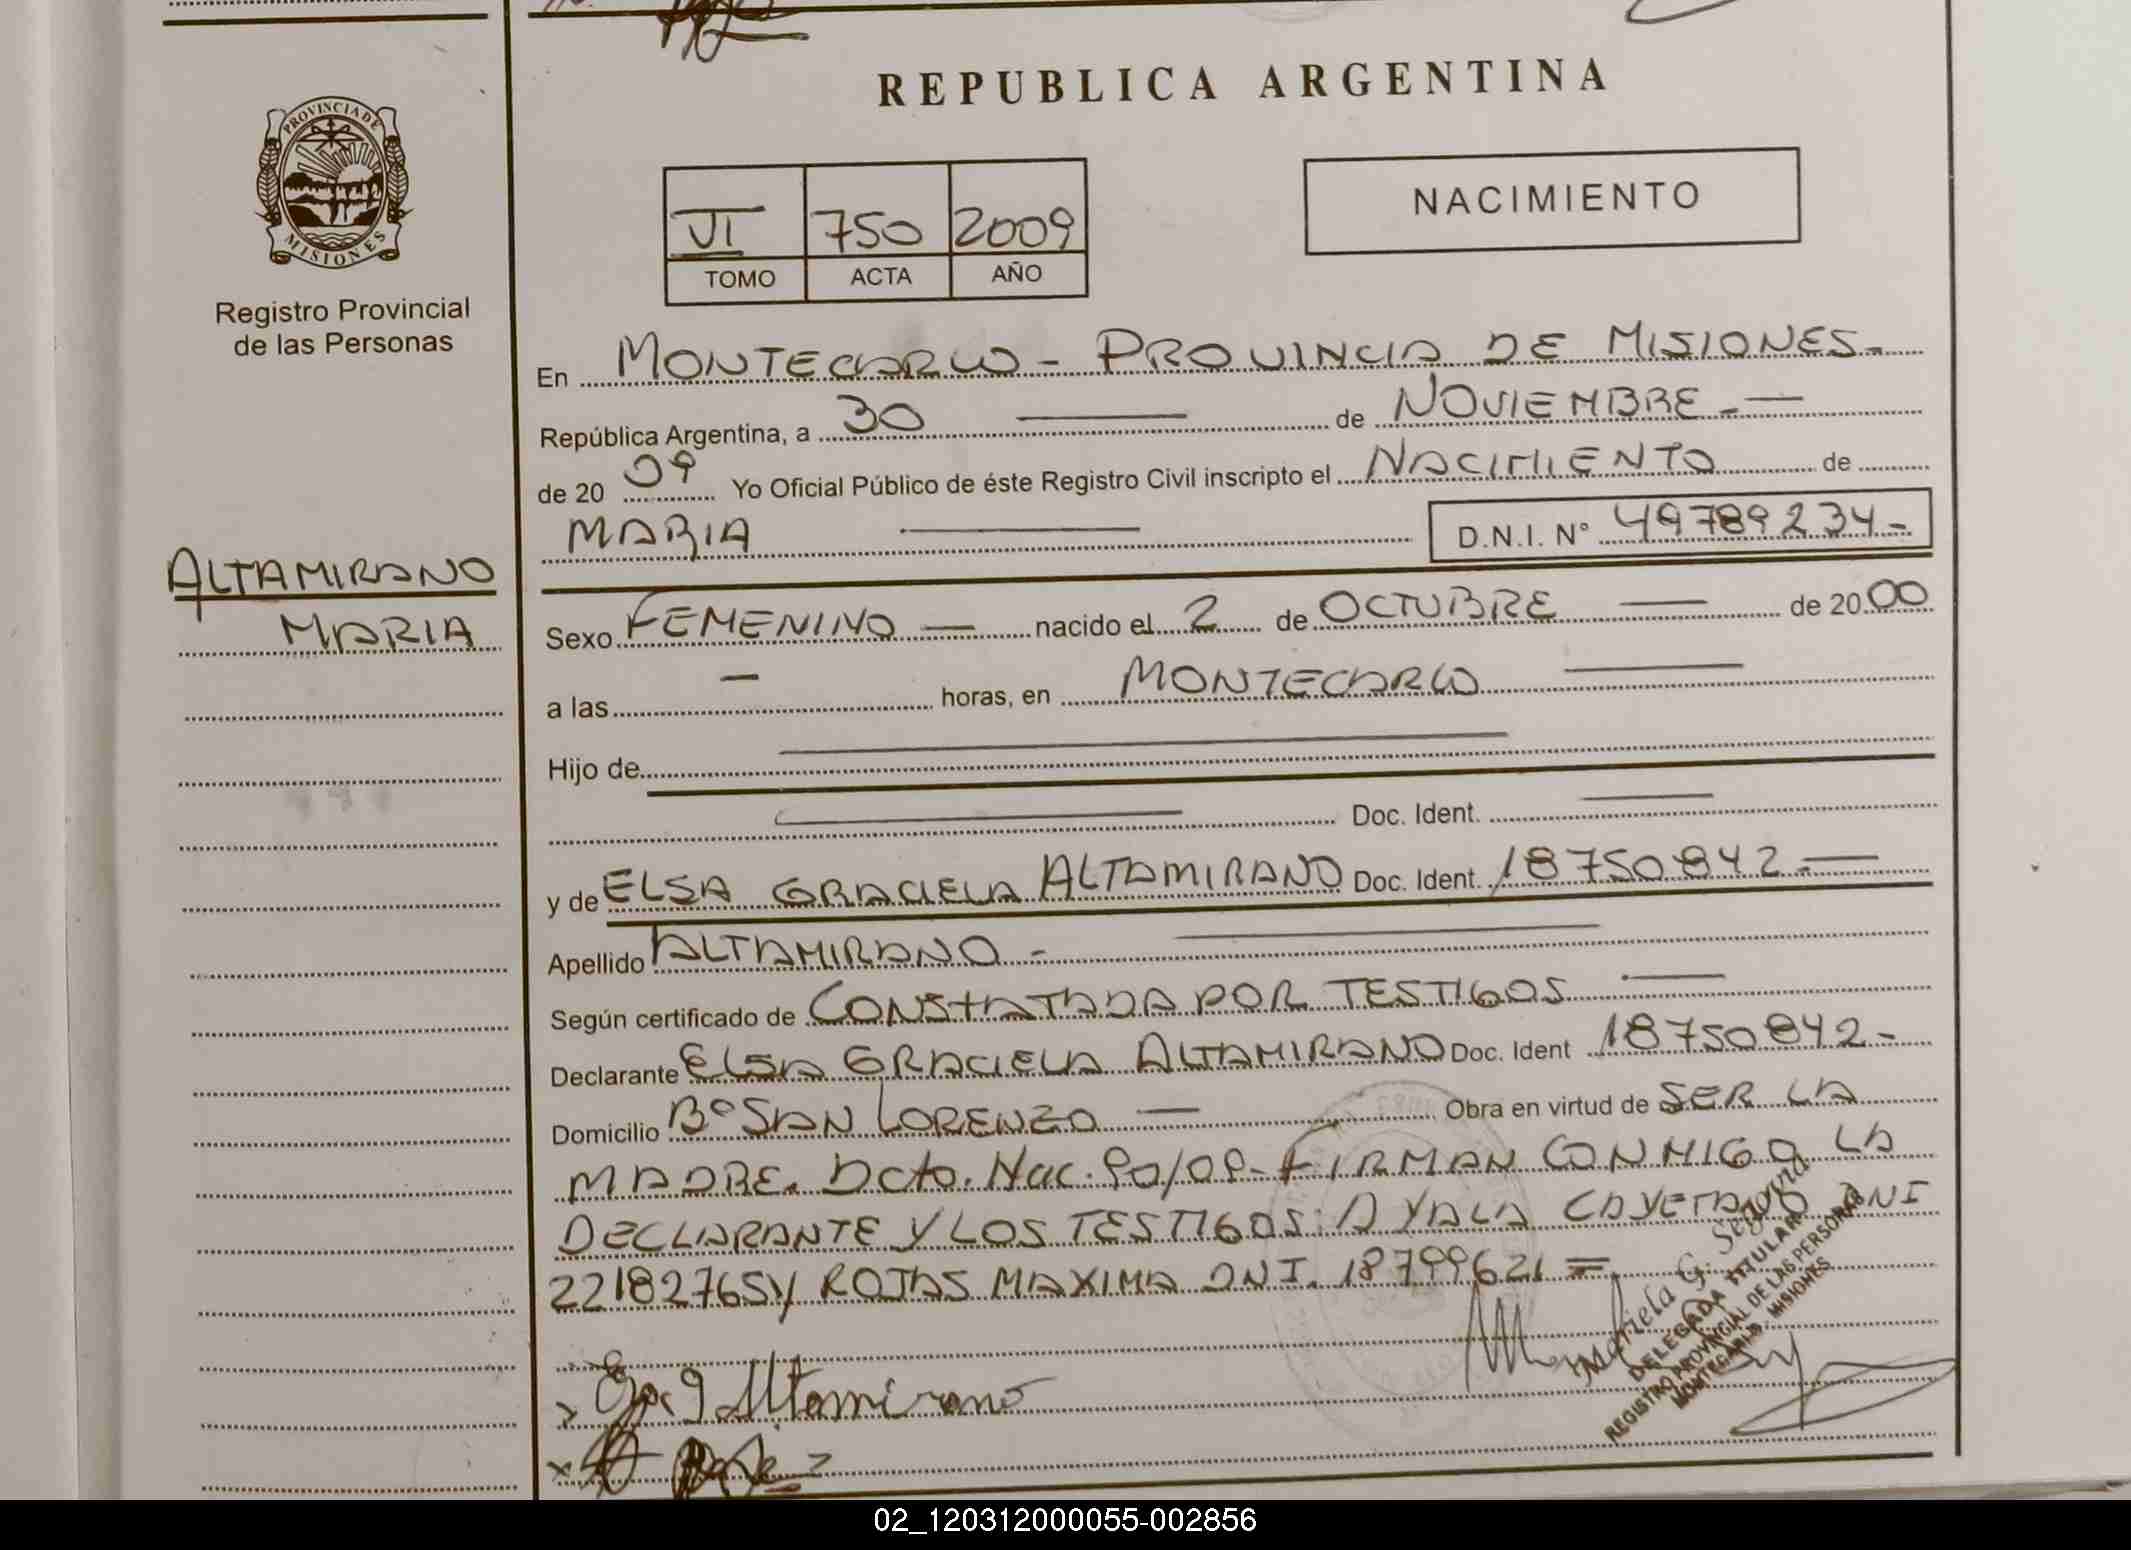 REPUBLICA ARGENTINA
PROVINCIA DE
MISIONES
Registro Provincial
de las Personas
VI 750 2009
TOMO ACTA AÑO
NACIMIENTO
En MONTECARLO - PROVINCIA DE MISIONES -
República Argentina, a 30 — de NOVIEMBRE - —
de 20 09 Yo Oficial Público de éste Registro Civil inscripto el NACIMIENTO de
MARIA — D.N.I. N° 49789234 -
ALTAMIRANO
MARIA
Sexo FEMENINO — nacido el 2 de OCTUBRE — de 20 00
a las — horas, en MONTECARLO —
Hijo de —
— Doc. Ident. —
y de ELSA GRACIELA ALTAMIRANO Doc. Ident. 18750842 - —
Apellido ALTAMIRANO - —
Según certificado de CONSTATADA POR TESTIGOS —
Declarante ELSA GRACIELA ALTAMIRANO Doc. Ident 18750842 -
Domicilio B° SAN LORENZO — Obra en virtud de SER LA
MADRE. Dcto. Nac. 90/09 - FIRMAN CONMIGO LA
DECLARANTE Y LOS TESTIGOS: AYALA CAYETANO DNI
22182765 Y ROJAS MAXIMA DNI. 18799621 =
Mariela G. Segovia
DELEGADA TITULAR
REGISTRO PROVINCIAL DE LAS PERSONAS
MONTECARLO - MISIONES
x Altamirano
02_120312000055-002856